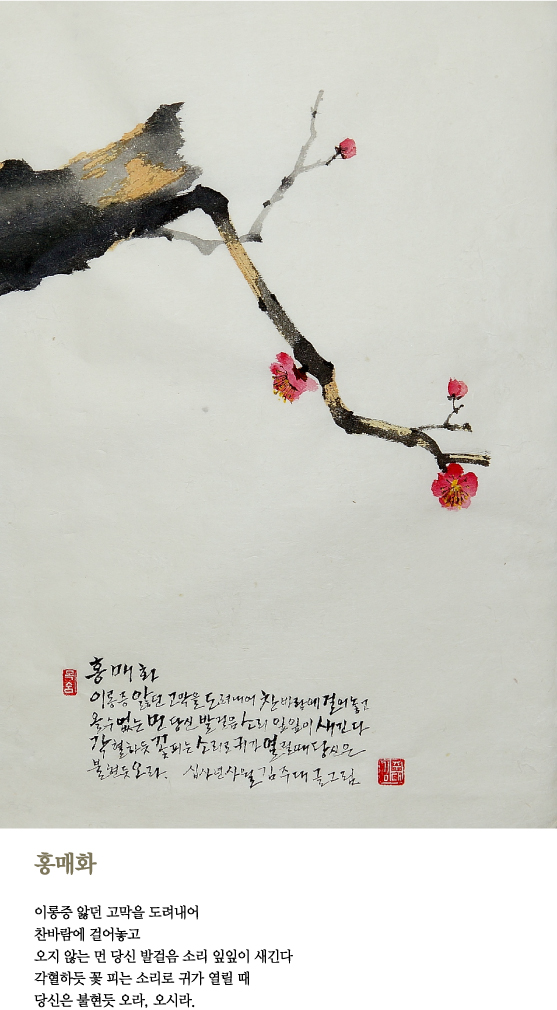 홍매화
이롱증 앓던 고막을 도려내어 찬바람에 걸어놓고
올 수 없는 먼 당신 발걸음 소리 잎잎이 새긴다
각혈하듯 꽃 피는 소리로 귀가 열릴 때 당신은
불현듯 오라. 십사년 사월 김주대 그림
홍매화
이롱증 앓던 고막을 도려내어
찬바람에 걸어놓고
오지 않는 먼 당신 발걸음 소리 잎잎이 새긴다
각혈하듯 꽃 피는 소리로 귀가 열릴 때
당신은 불현듯 오라, 오시라.